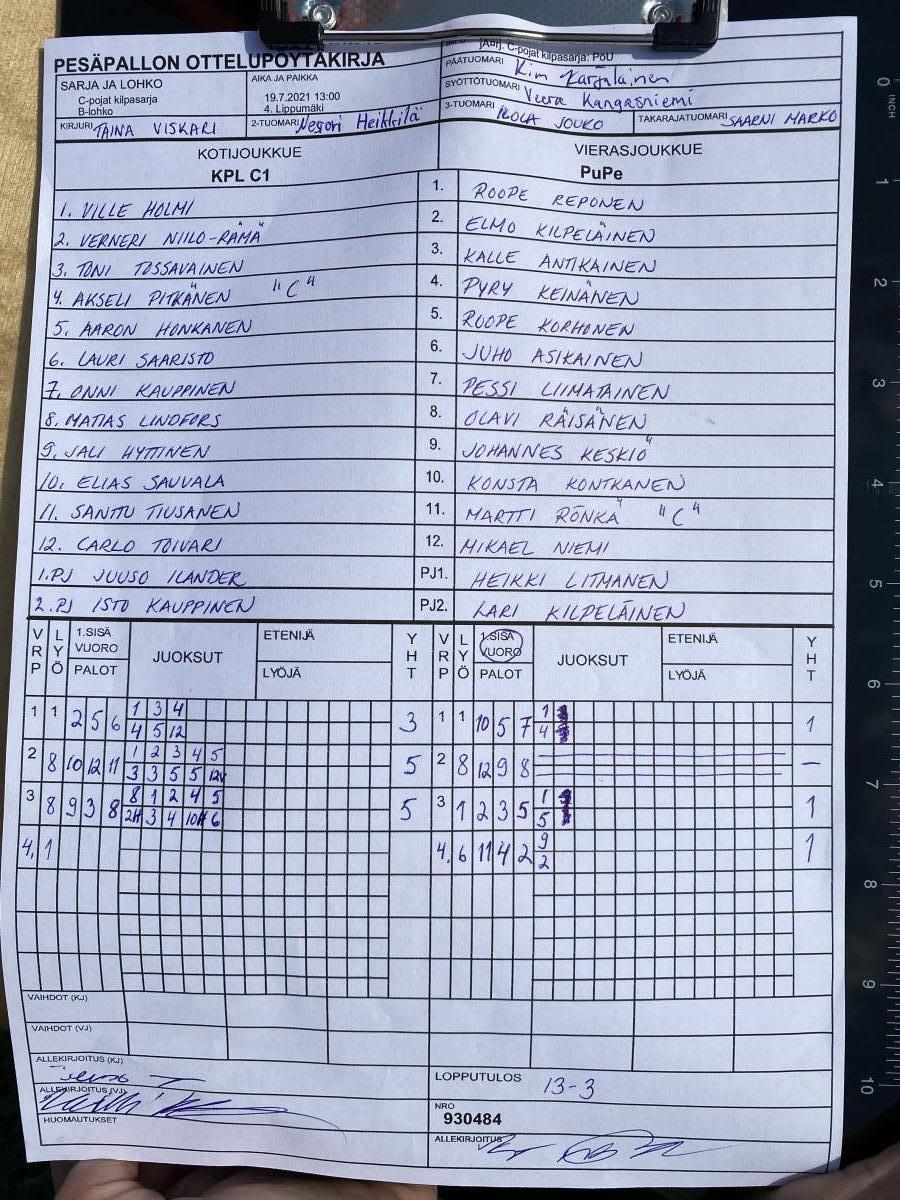 PESÄPALLON OTTELUPÖYTÄKIRJA
jARJ. C-pojat kilpasarja: PoU
SARJA JA LOHKO
C-pojat kilpasarja
B-lohko
AIKA JA PAIKKA
19.7.2021 13:00
4. Lippumäki
PÄÄTUOMARI Kim Karjalainen
SYÖTTÖTUOMARI Veera Kangasniemi
KIRJURI TAINA VISKARI
2-TUOMARI Heikkilä
3-TUOMARI JOUKO
TAKARAJATUOMARI SAARNI MARKO
KOTIJOUKKUE VIERASJOUKKUE
KPL C1 PuPe
1. VILLE HOLMI 1. ROOPE REPONEN
2. VERNERI NIILO-RÄMÄ 2. ELMO KILPELÄINEN
3. TONI TOSSAVAINEN 3. KALLE ANTIKAINEN
4. AKSELI PITKÄNEN "C" 4. PYRY KEINÄNEN
5. AARON HONKANEN 5. ROOPE KORHONEN
6. LAURI SAARISTO 6. JUHO ASIKAINEN
7. ONNI KAUPPINEN 7. PESSI LIIMATAINEN
8. MATIAS LINDFORS 8. OLAVI RÄISÄNEN
9. JALI HYTTINEN 9. JOHANNES KESKIÖ
10. ELIAS SAUVALA 10. KONSTA KONTKANEN
11. SANTTU TIUSANEN 11. MARTTI RÖNKÄ "C"
12. CARLO TOIVARI 12. MIKAEL NIEMI
1.PJ JUUSO ILANDER PJ1. HEIKKI LITMANEN
2.PJ ISTO KAUPPINEN PJ2. LARI KILPELÄINEN
VRP LYÖ 1.SISÄ VUORO PALOT JUOKSUT ETENIJÄ LYÖJÄ YHT VRP LYÖ 1.SISÄ VUORO PALOT JUOKSUT ETENIJÄ LYÖJÄ YHT
1 3 4 1
1 1 2 5 6 3 1 1 10 5 7 1
4 5 12 4
1 2 3 4 5
2 8 10 12 11 5 2 8 12 9 8 –
3 3 5 5 12
8 1 2 4 5 1
3 8 9 3 8 5 3 1 2 3 5 1
2H 3 4 10H 6 5
9
4. 1 4. 6 11 4 2 1
2
VAIHDOT (KJ)
VAIHDOT (VJ)
ALLEKIRJOITUS (KJ)
ALLEKIRJOITUS (VJ)
HUOMAUTUKSET
LOPPUTULOS 13-3
NRO
930484
ALLEKIRJOITUS
0 INCH
1
2
3
4
5
6
7
8
9
10